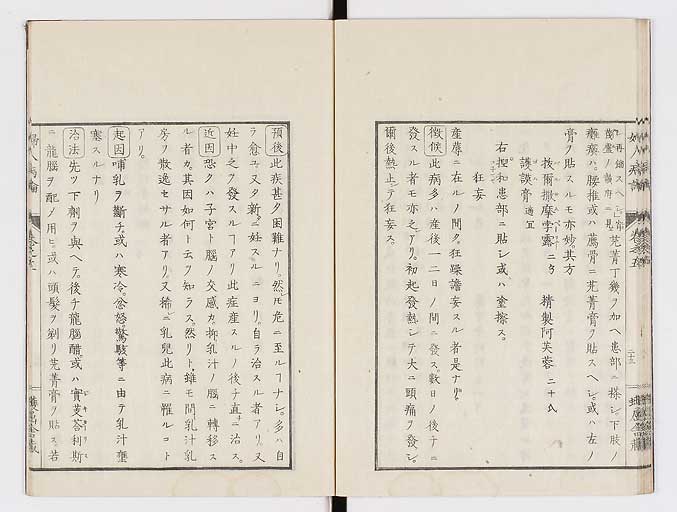 芫菁丁幾ヲ加ヘ患部ニ搽シ下肢ノ
癱瘓ハ腰椎或ハ薦骨ニ芫菁膏ヲ貼スヘシ。或ハ左ノ
膏ヲ貼スルモ亦妙其方
拔爾撒摩孛露 二タ 精製阿芙蓉 二十氏
護謨膏 適宜
右捏和患部ニ貼シ或ハ塗擦ス。
狂妄
産蓐ニ在ルノ間タ狂躁譫妄スル者是ナリ。
徴候 此病多ハ産後一二日ノ間ニ發ス。數日ノ後チニ
發スル者モ亦之アリ。初起發熱シテ大ニ頭痛ヲ發シ。
爾後熱止ンテ狂妄ス。
婦人病論
預後 此疾甚タ困難ナリ。然𪜈危ニ至ルヿナシ。多ハ自
ラ愈ユ又タ新ニ妊スルニヨリ。自ラ治スル者アリ又
妊中之ヲ發スルヿアリ此症産スルノ後チ直チニ治ス。
近因 恐クハ子宮ト腦ノ交感カ。抑乳汁ノ腦ニ轉移ス
ル者カ。其因如何ト云ヲ知ラス。然リト雖モ間乳汁乳
房ヲ散逸セサル者アリ又稀ニ乳兒此病ニ罹ルコト
アリ。
起因 哺乳ヲ斷チ或ハ寒冷忿怒驚駭等ニ由テ乳汁壅
塞スルナリ
治法 先ツ下劑ヲ與ヘテ。後チ龍腦醋或ハ實芰荅利斯
ニ龍腦ヲ配ノ用ヒ。或ハ頭髮ヲ剃リ芫菁膏ヲ貼ス。若